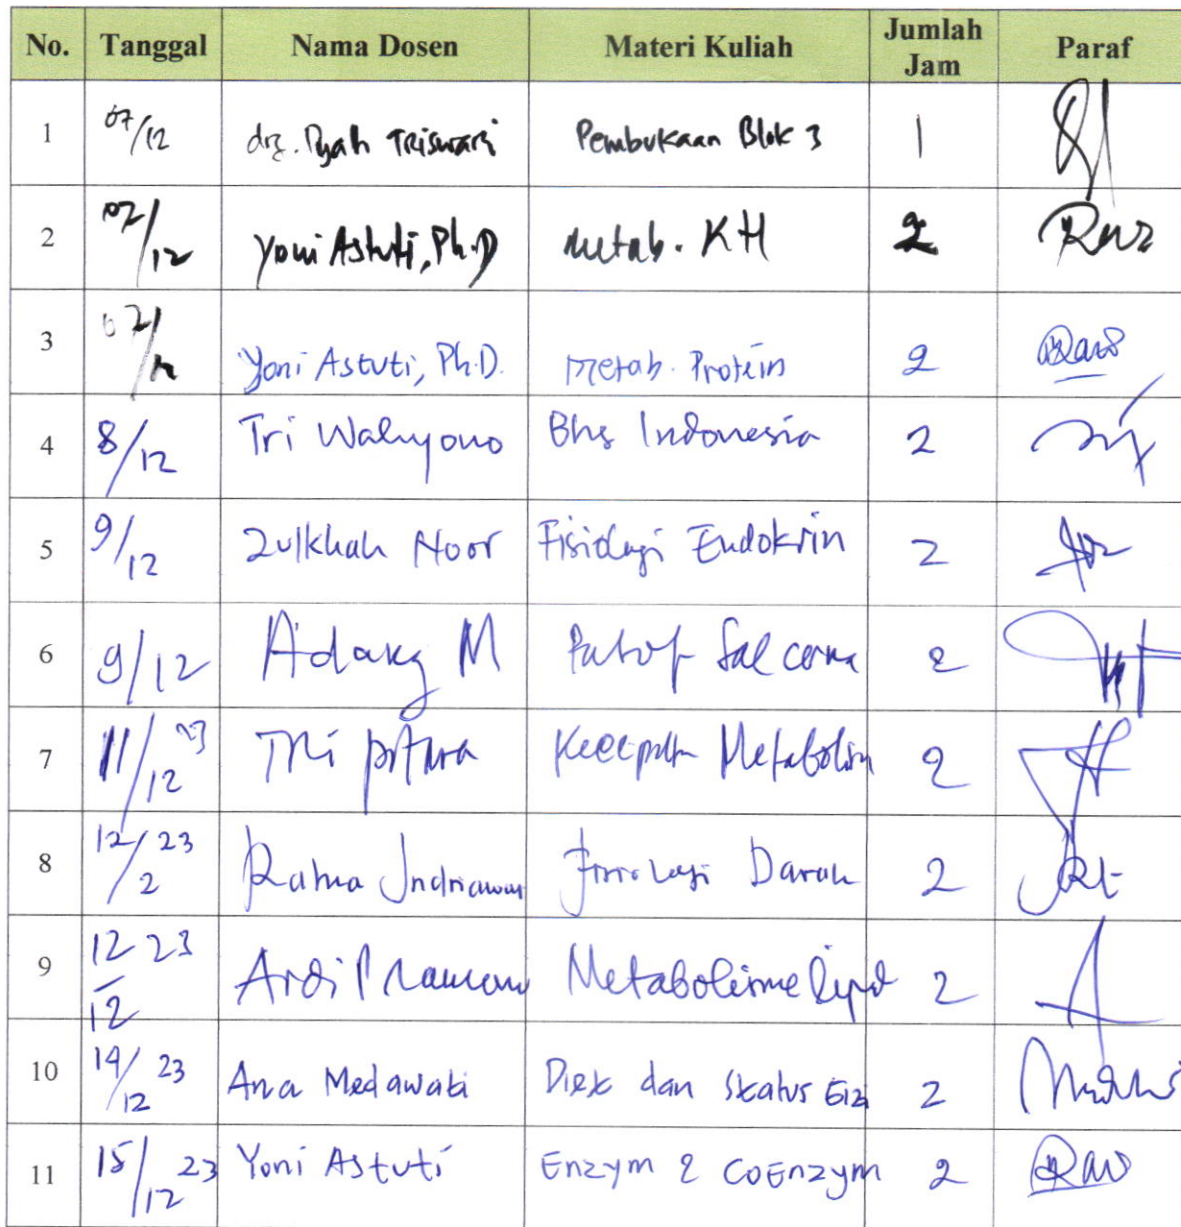 No. Tanggal Nama Dosen Materi Kuliah Jumlah Jam Paraf
1 07/12 drg. Dyah Triswari Pembukaan Blok 3 1
2 07/12 Yoni Astuti, Ph.D Metab. KH 2
3 07/12 Yoni Astuti, Ph.D. Metab. Protein 2
4 8/12 Tri Wahyono Bhs Indonesia 2
5 9/12 Zulkhah Noor Fisiologi Endokrin 2
6 9/12 Adang M 2
7 11/12 23 Tri Metabolism 2
8 12/2 23 Ratna Indriawati Fisiologi Darah 2
9 12/12 23 Ardi Pramono Metabolisme lipid 2
10 14/12 23 Ana Medawati Diet dan Status Gizi 2
11 15/12 23 Yoni Astuti Enzym & CoEnzym 2